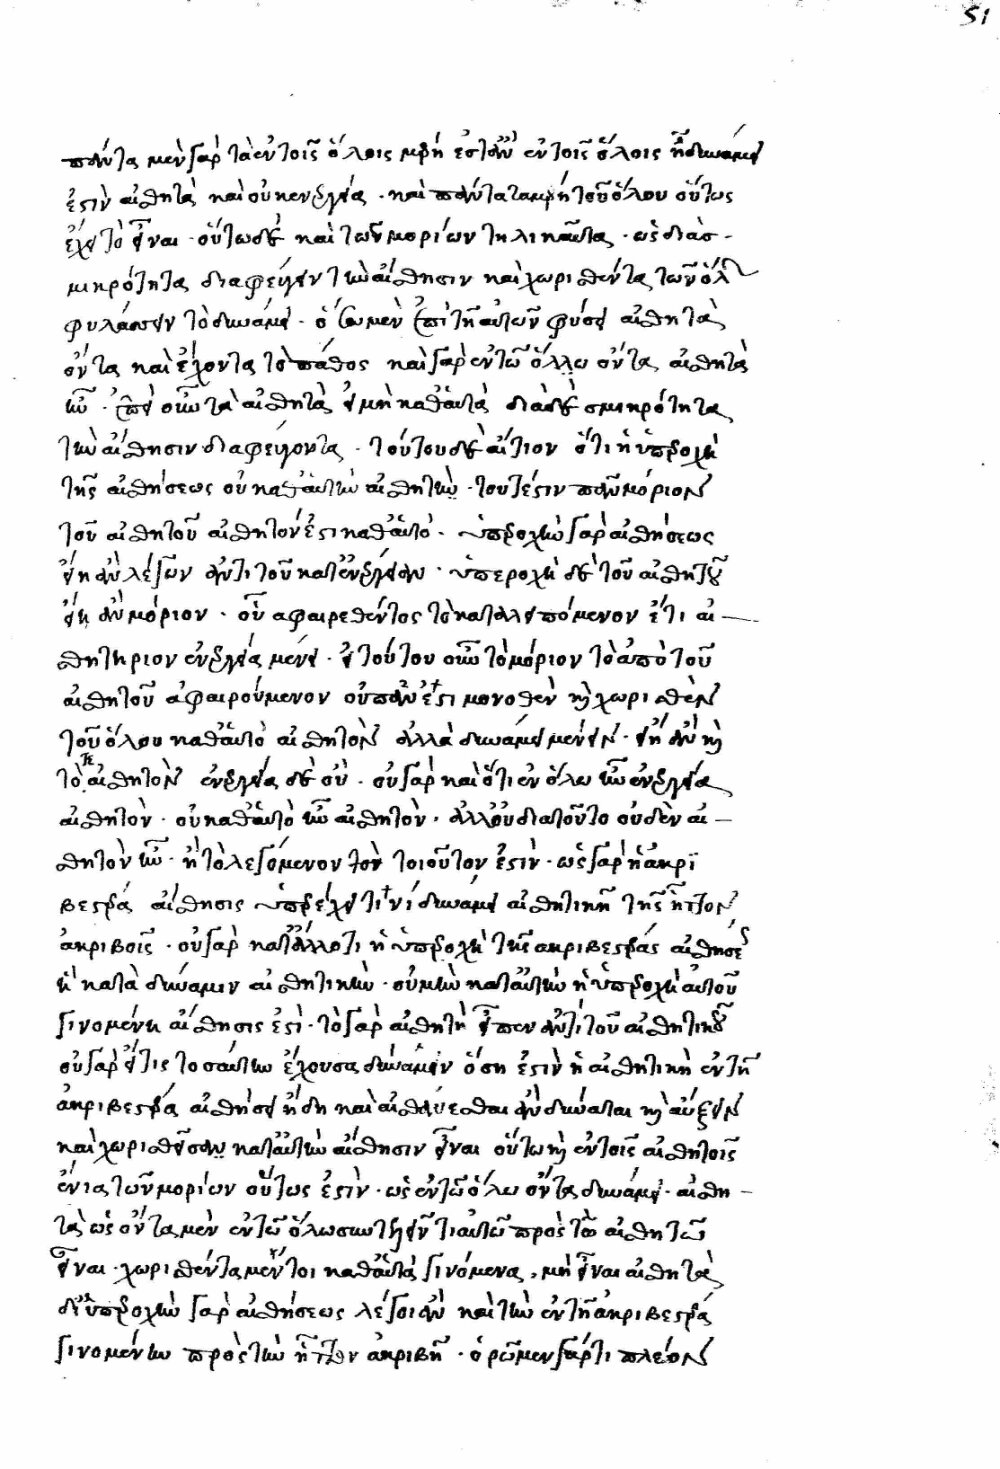 51
πάντα μὲν γὰρ τὰ ἐν τοῖς ὅλοις μέρη ἐστὶν ἐν τοῖς ὅλοις ἢ δυνάμει
ἐστὶν αἰσθητὰ καὶ οὐκ ἐνεργείᾳ · καὶ πάντα τὰ μέρη τοῦ ὅλου οὕτως
ἔχει τὸ εἶναι · οὕτω δὲ καὶ τῶν μορίων τηλικαῦτα · ὡς διὰ σ-
μικρότητα διαφεύγειν τὴν αἴσθησιν καὶ χωρισθέντα τῶν ὅλων
φυλάττειν τὸ δυνάμει · ὃ μὲν ἐπὶ τῇ αὐτῶν φύσει αἰσθητὰ
ὄντα καὶ ἔχοντα τὸ πάθος καὶ γὰρ ἐν τῷ ὅλῳ ὄντα αἰσθητὰ
ἦν · ἐπεὶ οὖν τὰ αἰσθητὰ εἰ μὴ καθ' αὑτὰ διὰ δὲ σμικρότητα
τὴν αἴσθησιν διαφεύγοντα · τούτου δὲ αἴτιον ὅτι ἡ ὑπεροχὴ
τῆς αἰσθήσεως οὐ καθ' αὑτὴν αἰσθητὴ · τουτέστιν πᾶν μόριον
τοῦ αἰσθητοῦ αἰσθητόν ἐστι καθ' αὑτό · ὑπεροχὴν γὰρ αἰσθήσεως
εἴη ἂν λέγων ἀντὶ τοῦ κατ' ἐνέργειαν · ὑπεροχὴ δὲ τοῦ αἰσθητοῦ
εἴη ἂν μόριον · οὗ ἀφαιρεθέντος τὸ καταλειπόμενον ἔτι αἰ-
σθητήριον ἐνεργείᾳ μένει · εἰ τοῦτον οὖν τὸ μόριον τὸ ἀπὸ τοῦ
αἰσθητοῦ ἀφαιρούμενον οὐ πάντη ἔτι μονωθὲν καὶ χωρισθὲν
τοῦ ὅλου καθ' αὑτὸ αἰσθητὸν ἀλλὰ δυνάμει μένειν · εἴη ἂν καὶ
τὸ αἰσθητὸν ἐνεργείᾳ δὲ οὔ · οὐ γὰρ καὶ ὅτι ἐν ὅλῳ ἦν ἐνεργείᾳ
αἰσθητὸν · οὐ καθ' αὑτὸ ἦν αἰσθητὸν · ἀλλ' οὐ διὰ τοῦτο οὐδὲν αἰ-
σθητὸν ἦν · ἢ τὸ λεγόμενον τὸν τοιοῦτον ἐστὶν · ὡς γὰρ ἡ ἀκρι
βεστέρα αἴσθησις ὑπερέχει τινὶ δυνάμει αἰσθητικῇ τῆς ἧττον
ἀκριβοῦς · οὐ γὰρ κατ' ἄλλο τι ἡ ὑπεροχὴ τῆς ἀκριβεστέρας αἰσθήσεως
ἢ κατὰ δύναμιν αἰσθητικὴν · οὐ μὴν κατ' αὐτὴν ἡ ὑπεροχὴ αὐτοῦ
γινομένη αἴσθησις ἐστὶ · τὸ γὰρ αἰσθητὴ εἶπεν ἀντὶ τοῦ αἰσθητικοῦ
οὐ γὰρ εἴ τις τοσαύτην ἔχουσα δύναμιν ὅση ἐστὶν ἡ αἰσθητικὴ ἐν τῇ
ἀκριβεστέρᾳ αἰσθήσει ἤδη καὶ αἰσθάνεσθαι ἂν δύναται καὶ αὔξειν
καὶ χωρισθεῖσαν κατ' αὐτὴν αἴσθησιν εἶναι οὕτω καὶ ἐν τοῖς αἰσθητοῖς
ἔνια τῶν μορίων οὕτως ἐστὶν · ὡς ἐν τῷ ὅλῳ ὄντα δυνάμει · αἰσθη-
τὰ ὡς ὄντα μὲν ἐν τῷ ὅλῳ συντελεῖν τι αὐτῷ πρὸς τὸ αἰσθητῷ
εἶναι · χωρισθέντα μέντοι καθ' αὑτὰ γινόμενα, μὴ εἶναι αἰσθητὰ
δι' ὑπεροχὴν γὰρ αἰσθήσεως λέγοι ἂν καὶ τὴν ἐν τῇ ἀκριβεστέρᾳ
γινομένην πρὸς τὴν ἧττον ἀκριβῆ · ὁρῶμεν γάρ τι πλέον